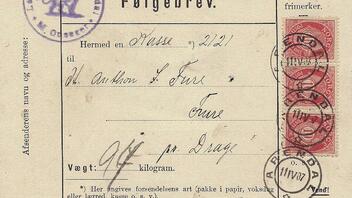 Følgebrev.
frimerker.
Afsenderens navn og adresse:
Hermed en Kasse 2121
til
Hr. Anthon S. Fure
Fure
pr. Drage
Vægt: kilogram.
*) Her angives forsendelsens art (pakke i papir, voksdug
eller lærred, kasse o. s. v.)
ARENDAL
11 IV 07
ARENDAL
11 IV 07